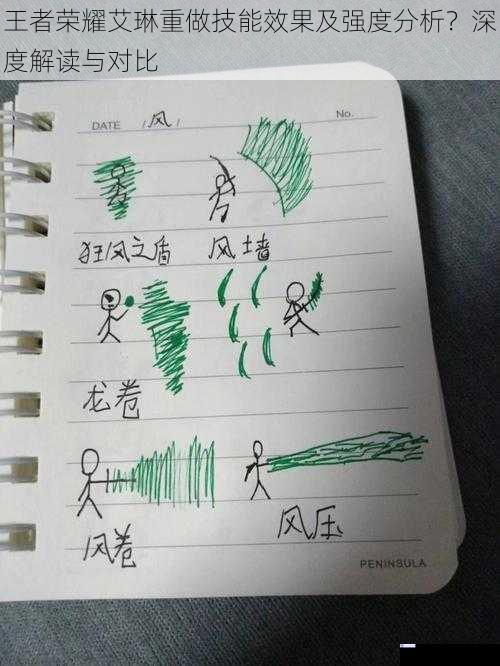 王者荣耀艾琳重做技能效果及强度分析？深
度解读与对比
DATE / 风 / No.
狂风之盾 风墙
龙卷
风卷 风压
PENINSULA